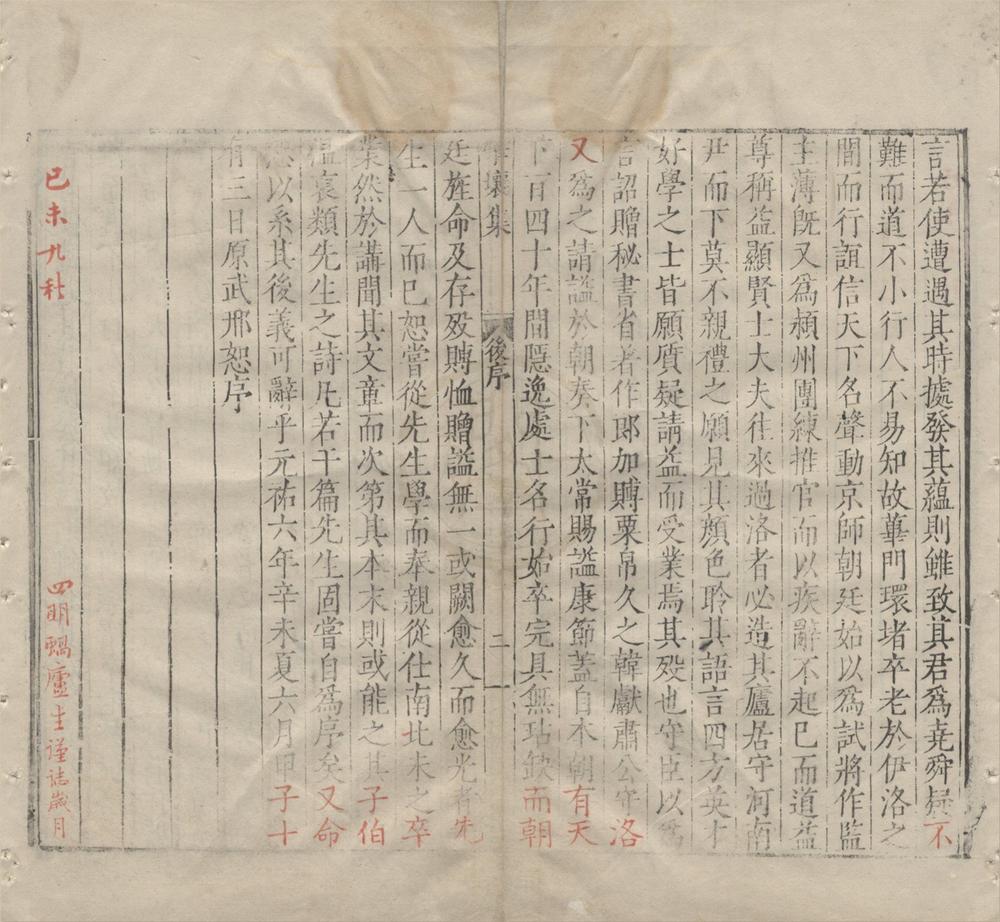 言若使遭遇其時據發其蘊則雖致其君爲堯舜疑不
難而道不小行人不易知故蓽門環堵卒老於伊洛之
間而行誼信天下名聲動京師朝廷始以爲試將作監
主薄旣又爲潁州團練推官而以疾辭不起已而道益
尊稱益顯賢士大夫往來過洛者必造其廬居守河南
尹而下莫不親禮之願見其顏色聆其語言四方英才
好學之士皆願質疑請益而受業焉其歿也守臣以爲
言詔贈秘書省著作郎加賻粟帛久之韓獻肅公守洛
又爲之請謚於朝奏下太常賜謚康節蓋自本朝有天
下百四十年間隱逸處士名行始卒完具無玷缺而朝
擊壤集
後序
二
廷旌命及存歿賻恤贈謚無一或闕愈久而愈光者先
生一人而已恕嘗從先生學而奉親從仕南北未之卒
業然於講聞其文章而次第其本末則或能之其子伯
溫裒類先生之詩凡若干篇先生固嘗自爲序矣又命
恕以系其後義可辭乎元祐六年辛未夏六月甲子十
有三日原武邢恕序
己未九秋
四明蝸廬主謹誌歲月